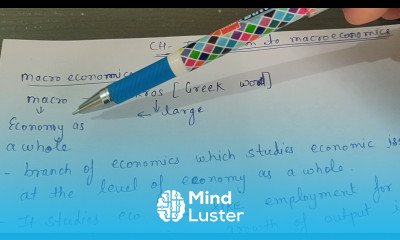 CH- to macroeconomics
macro economics
macro ros [Greek word]
↓ ↓
Economy as ← large
a whole
- branch of economics which studies economic iss
at the level of economy as a whole.
- It studies eco like employment for
growth of output i
Mind
Luster